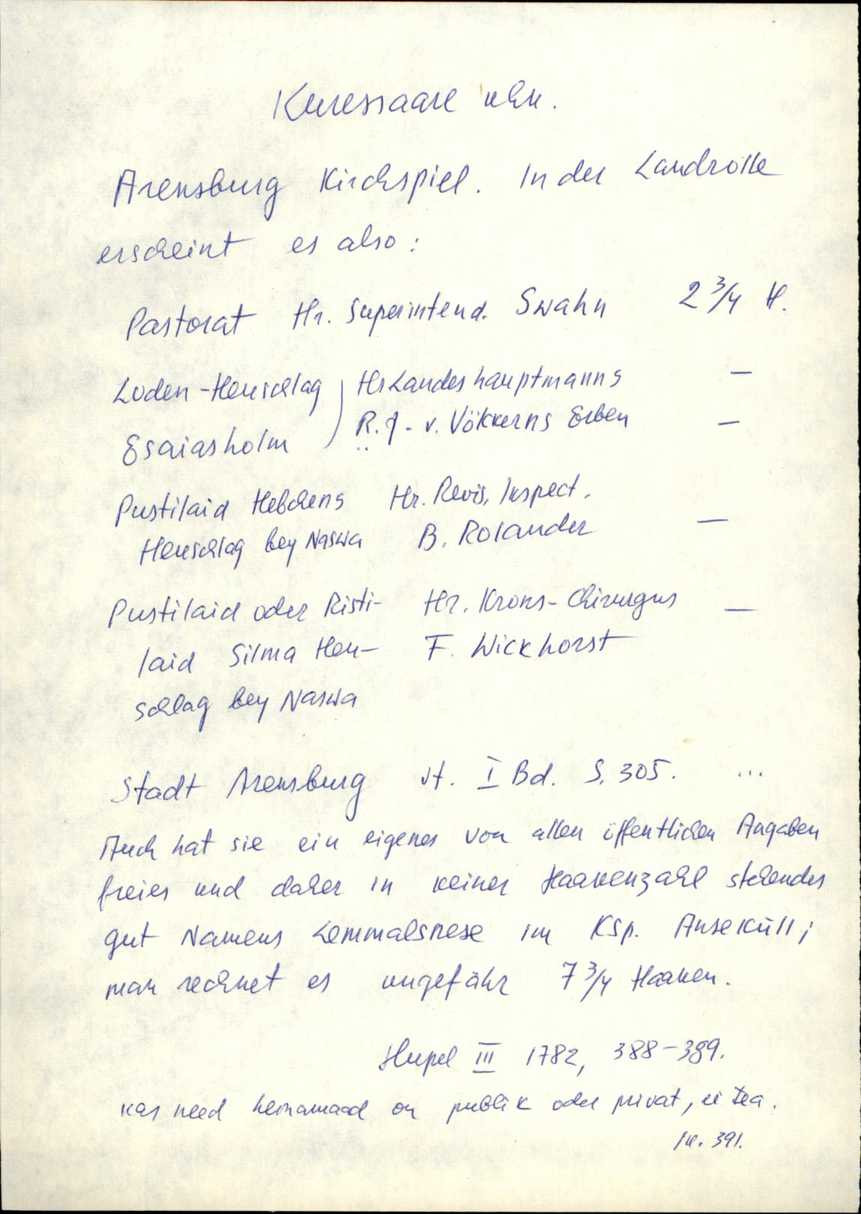 Kuressaare khk.
Arensburg Kirchspiel. In der Landrolle
erscheint es also:
Pastorat Hr. Superintend. Swahn 2 3/4 H.
Loden-Heuschlag ) Hr Landeshauptmanns —
Esaiasholm ) R. J. v. Völkerns Erben —
Pustilaid Hebchens Hr. Revis. Inspect.
Heuschlag bey Naswa B. Rolander —
Pustilaid oder Risti- Hr. Krons-Chirurgus —
laid Silma Heu- F. Wickhorst
schlag bey Naswa
Stadt Arensburg st. I Bd. S. 305. ...
Auch hat sie ein eigenes von allen öffentlichen Angaben
freies und daher in keiner Haakenzahl stehendes
gut Namens Lemmalsnese im Ksp. Anseküll;
man rechnet es ungefähr 7 3/4 Haaken.
Hupel III 1782, 388-389.
kas need heinamaad on publik oder privat, ei tea.
lk. 391.